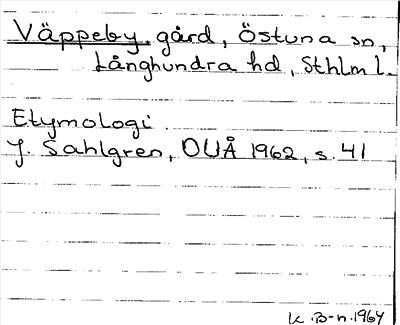 Väppeby, gård, Östuna sn,
Långhundra hd, Sthlm l.
Etymologi
J. Sahlgren, OUÅ 1962, s. 41
K.B-n. 1964